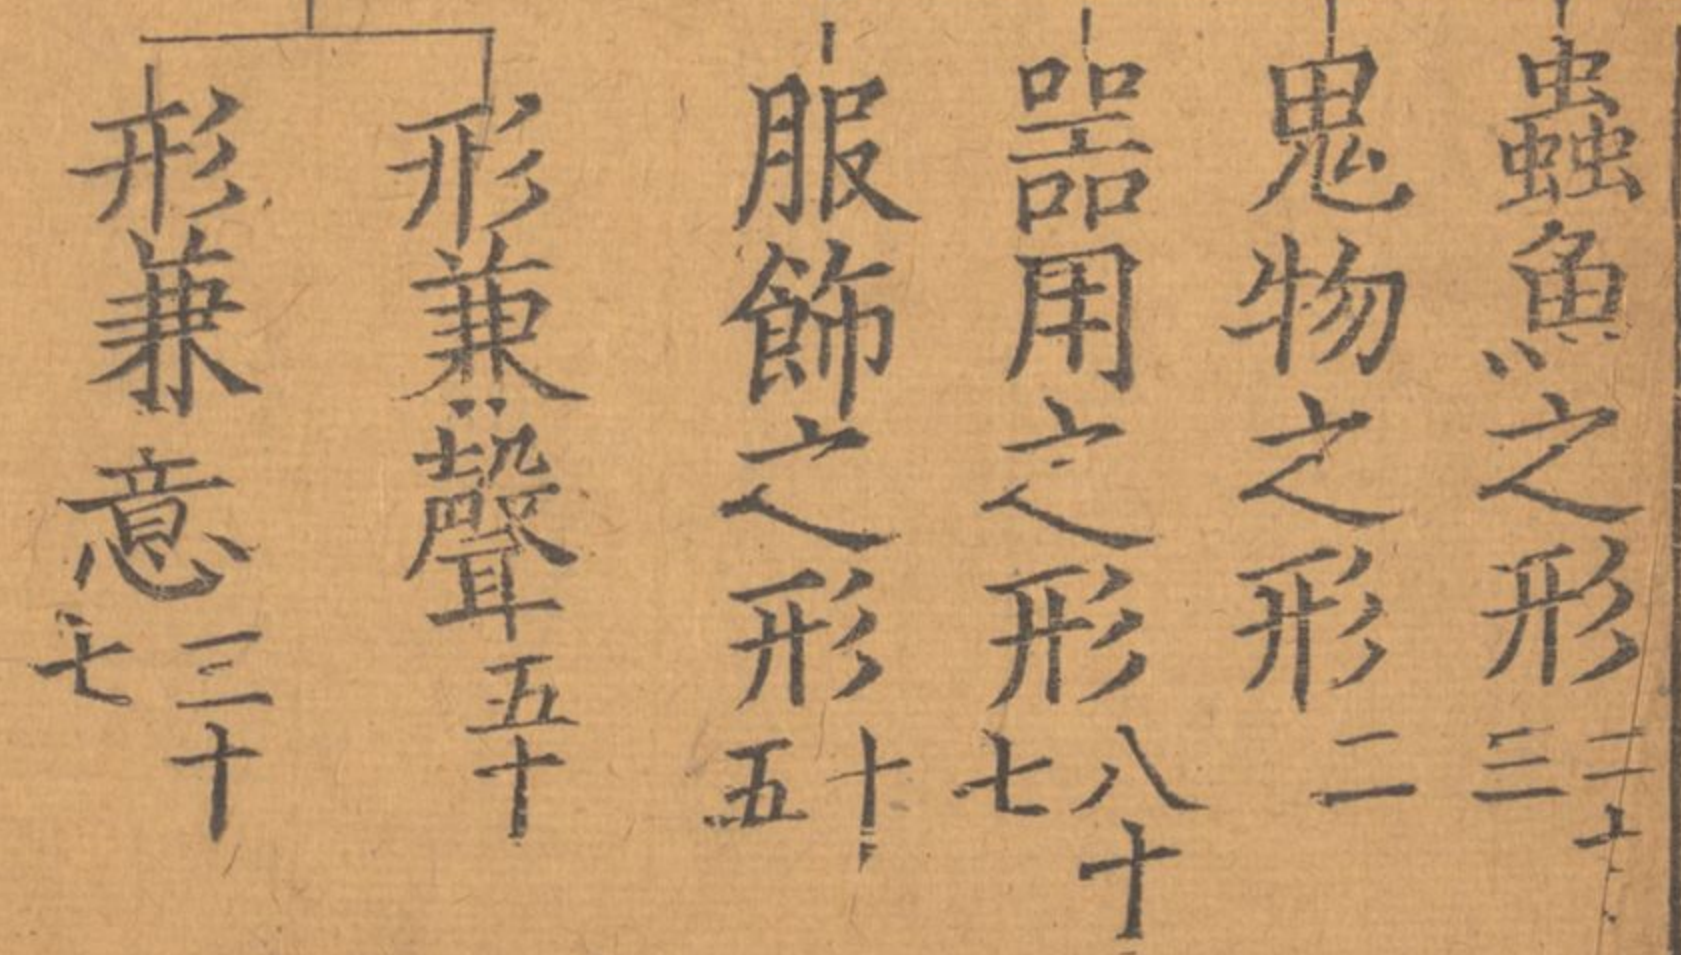 蟲魚之形二十三
鬼物之形二
噐用之形八十七
服飾之形十五
形兼聲五十
形兼意三十七